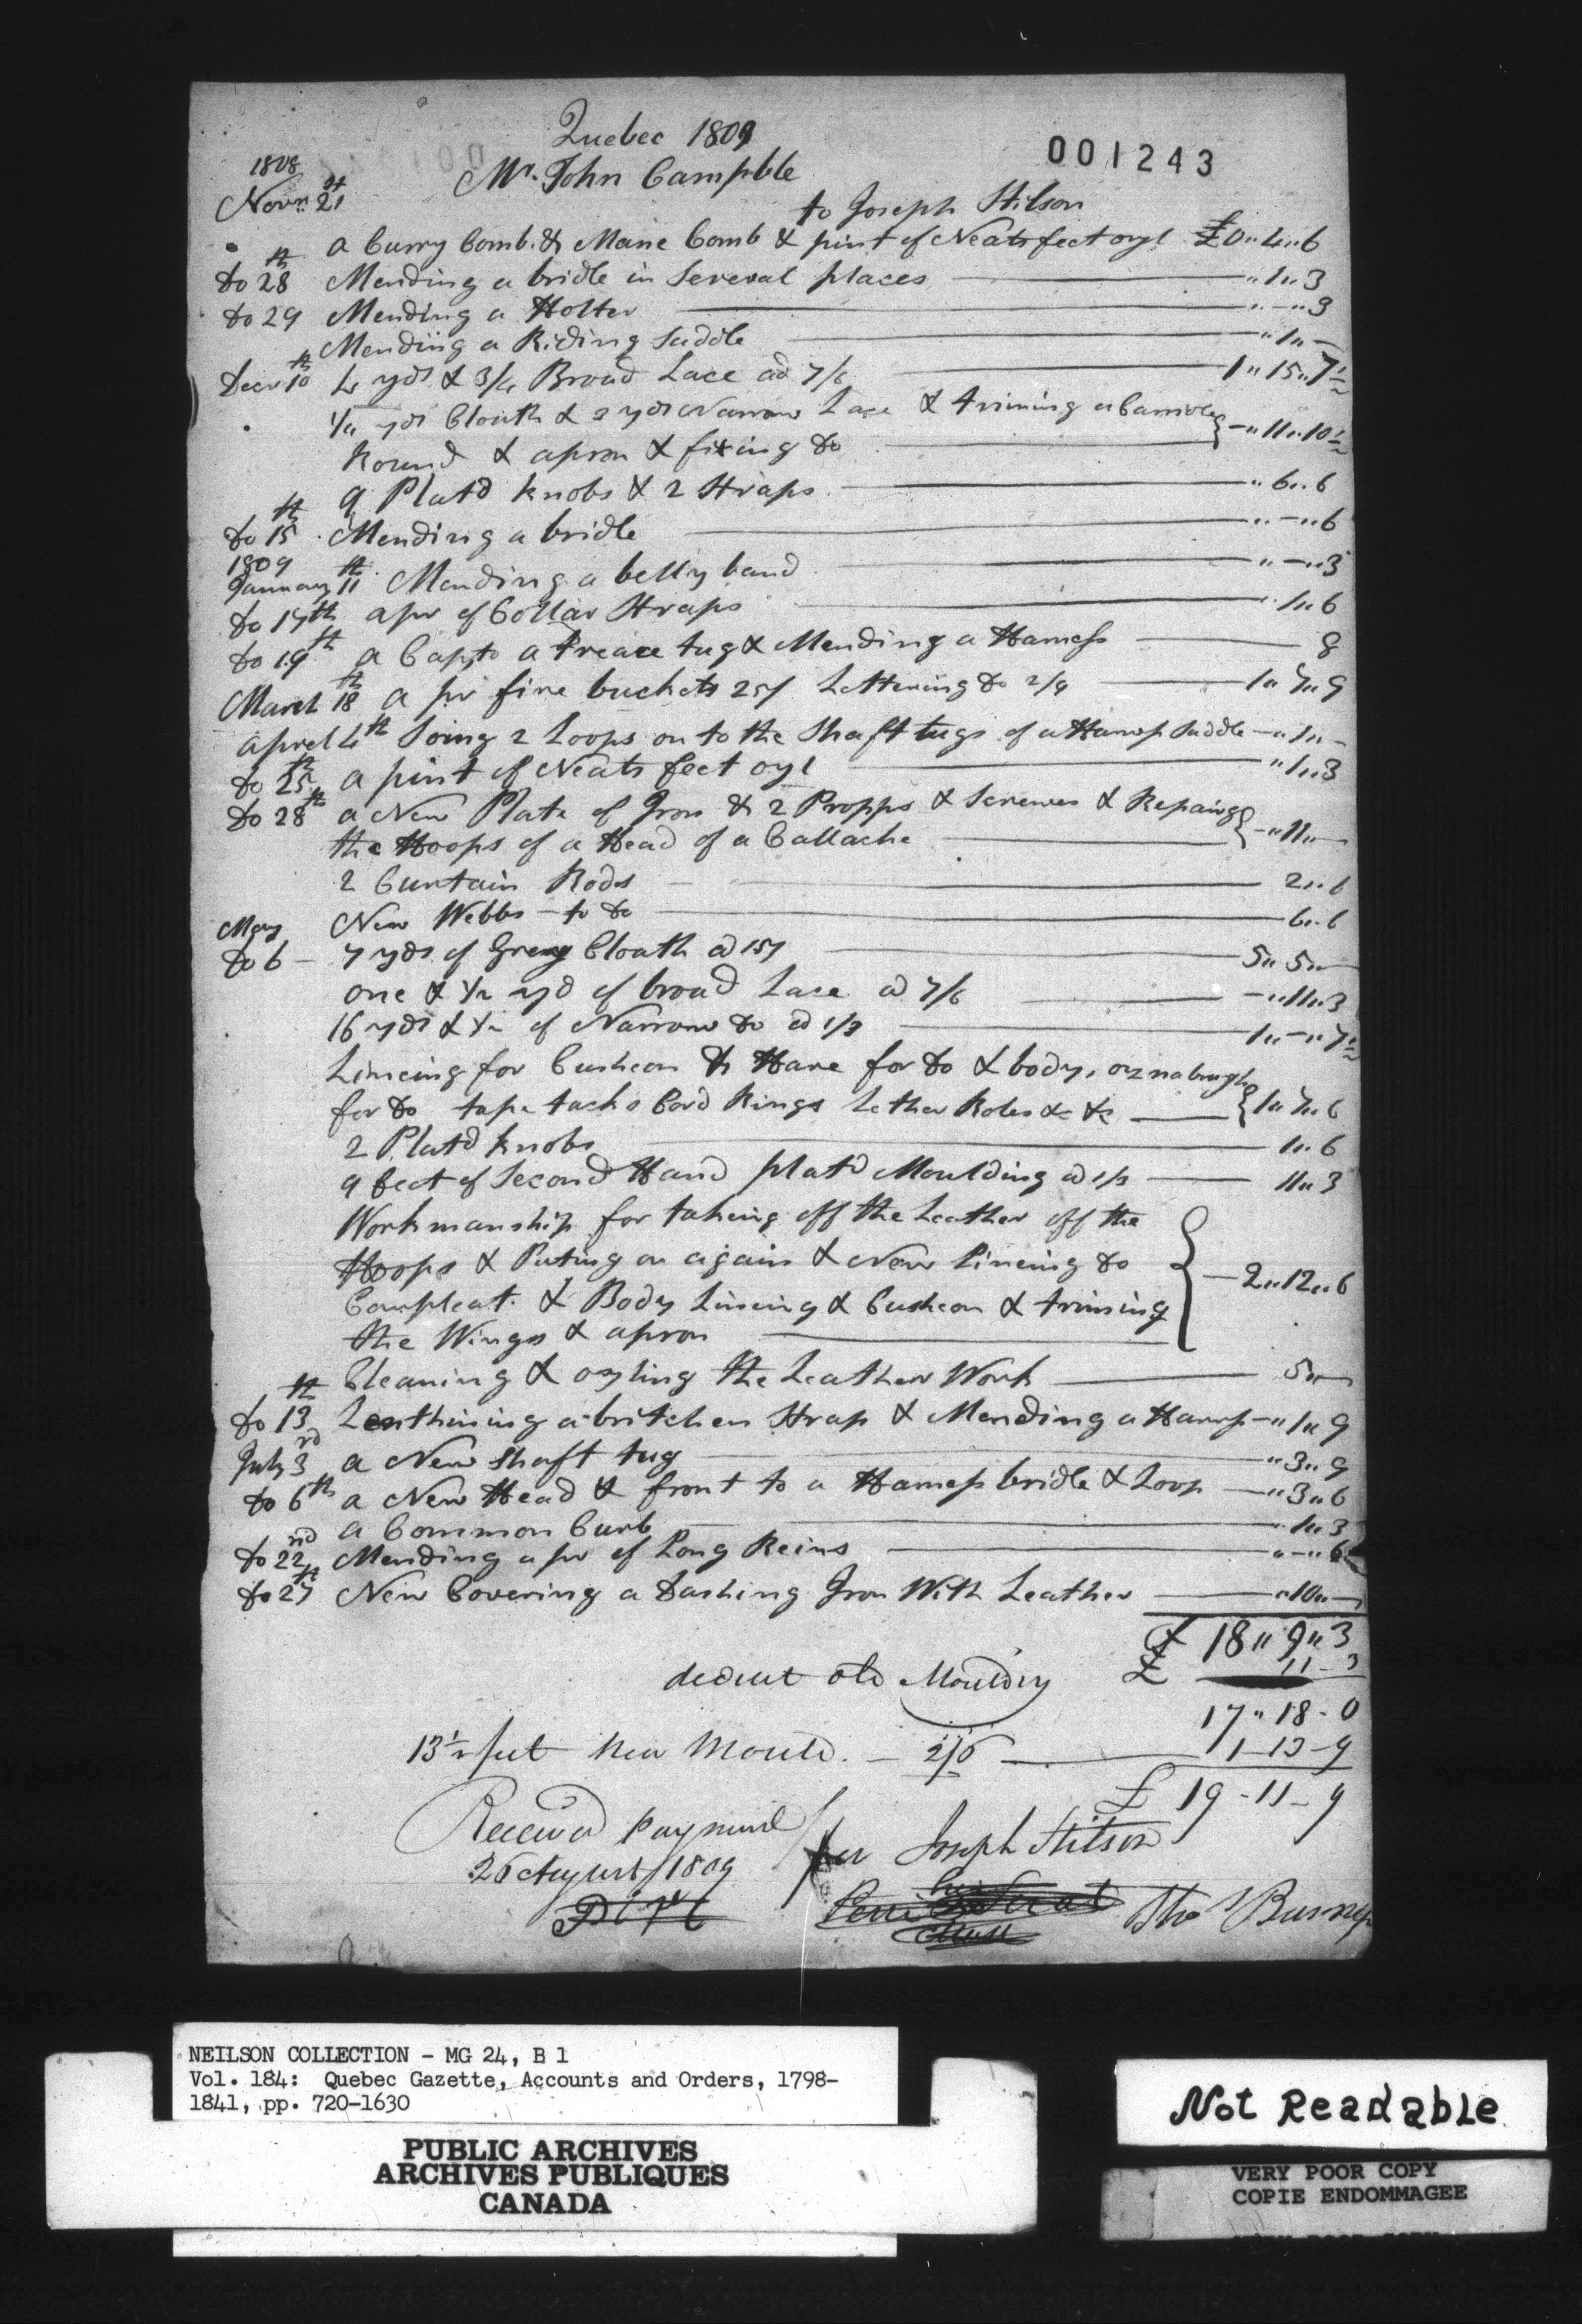 Quebec 1809
001243
1808
Mr. John Campble
Novr. 21st
to Joseph Stilson
a Curry Comb. & Mane Comb & pint of Neats feet oyl £0 " 4 " 6
Do 28th Mending a bridle in Several places " 1 " 3
Do 29 Mending a Holter " - " 9
Mending a Riding Saddle " 1 " -
Decr 10th 4 yds & 3/4 Broad Lace ad 7/6 1 " 15 " 7 1/2
1/4 yds Cloath & 2 yds Narrow Lace & triming a Carriole } - " 11 " 10 1/2
Round & apron & fixing Do
9 Platd knobs & 2 Straps " 6 " 6
Do 15th Mending a bridle " - " 6
1809
January 11th Mending a belly band " - " 3
Do 17th a pr of Collar Straps 1 " 6
Do 19th a Cap to a treace tug & Mending a Harness 8
March 18th a pr fire buckets 25/ Lettering Do 2/9 1 " 7 " 9
aprel 4th Soing 2 Loops on to the Shaft tugs of a Harness Saddle - " 1 " -
Do 25th a pint of Neats feet oyl " 1 " 3
Do 28th a New Plate of Iron & 2 Propps & Screwes & Repairing } - " 11 " -
the Hoops of a Head of a Callache
2 Curtain Rods 2 " 6
May New Webbs - to Do 6 " 6
Do 6 - 7 yds of Grey Cloath ad 15/ 5 " 5 " -
one & 1/2 yd of broad Lace ad 7/6 - " 11 " 3
16 yds & 1/2 of Narrow Do ad 1/3 1 " - " 7 1/2
Lineing for Cusheon & Hare for Do & body, oznabrugh
for Do tape tacks Cord Rings Lether Roles &c &c } 1 " 7 " 6
2 Platd knobs 1 " 6
9 feet of Second Hand platd Moulding ad 1/3 11 " 3
Workmanship for takeing off the Leather off the
Hoops & Puting on again & New Lineing Do
Compleat. & Body Lineing & Cusheon & triming } - 2 " 12 " 6
the Wings & apron
Cleaning & oyling the Leather Work 5 " -
Do 13th Lenthining a britchen Strap & Mending a Harness - " 1 " 9
July 3rd a New Shaft tug " 3 " 9
Do 6th a New Head & front to a Harness bridle & Loop - " 3 " 6
a Common Curb 1 " 3
Do 22nd Mending a pr of Long Reins " - " 6
Do 27th New Covering a Dashing Iron With Leather " 10 " -
£ 18 " 9 " 3
deduct old Moulding £ 11 - 3
17 " 18 - 0
13 1/2 feet new Mould. - 2/6 1 - 13 - 9
£ 19 - 11 - 9
Received payment
for Joseph Stilson
26 August 1809
his
Mark
Tho
NEILSON COLLECTION - MG 24, B 1
Vol. 184: Quebec Gazette, Accounts and Orders, 1798-
1841, pp. 720-1630
PUBLIC ARCHIVES
ARCHIVES PUBLIQUES
CANADA
Not Readable
VERY POOR COPY
COPIE ENDOMMAGEE